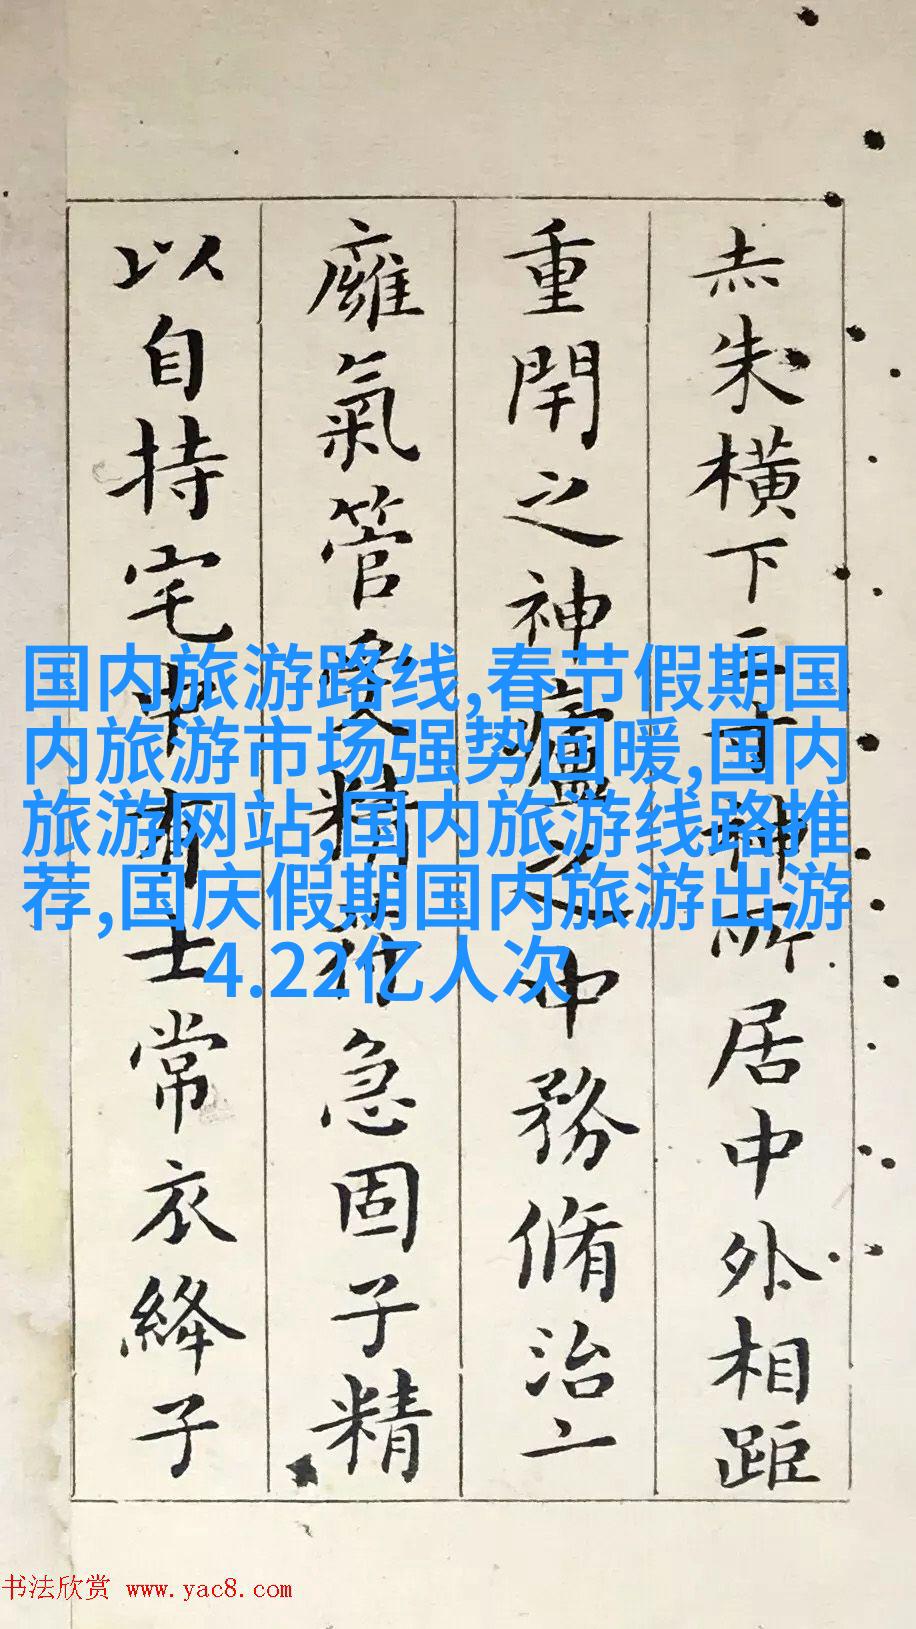 赤朱橫下三寸神所居中外相距
重閇之神廬之中務脩治二
廱氣管受精符急固子精
以自持宅中有士常衣絳子
国内旅游路线,春节假期国
内旅游市场强势回暖,国内
旅游网站,国内旅游线路推
荐,国庆假期国内旅游出游
4.22亿人次
书法欣赏 www.yac8.com